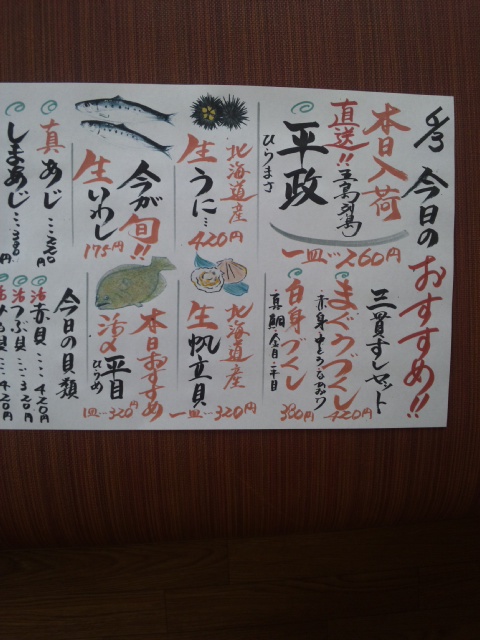 今日のおすすめ!!
本日入荷
直送!! 五島列島
平政
ひらまさ
一皿…260円
三貫すしセット
まぐろづくし
420円
白身づくし
真鯛・金目・平目
380円
北海道産
生うに…
420円
今が旬!!
生いわし
175円
北海道産
生帆立貝
一皿…320円
本日おすすめ
活〆平目
ひらめ
1皿…320円
真あじ…
しまあじ…
今日の貝類
活赤貝……420円
活つぶ貝……320円
420円